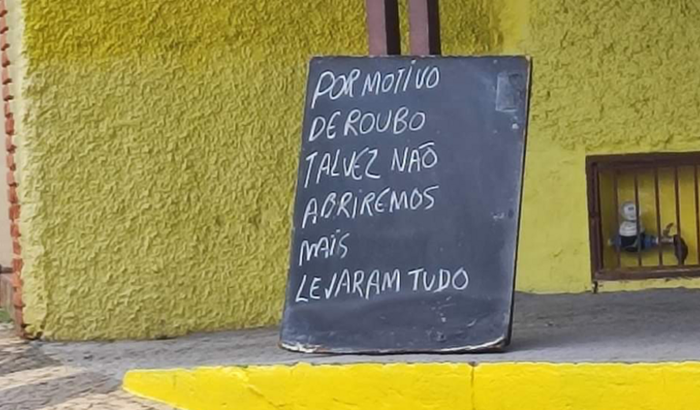 POR MOTIVO
DE ROUBO
TALVEZ NÃO
ABRIREMOS
MAIS
LEVARAM TUDO